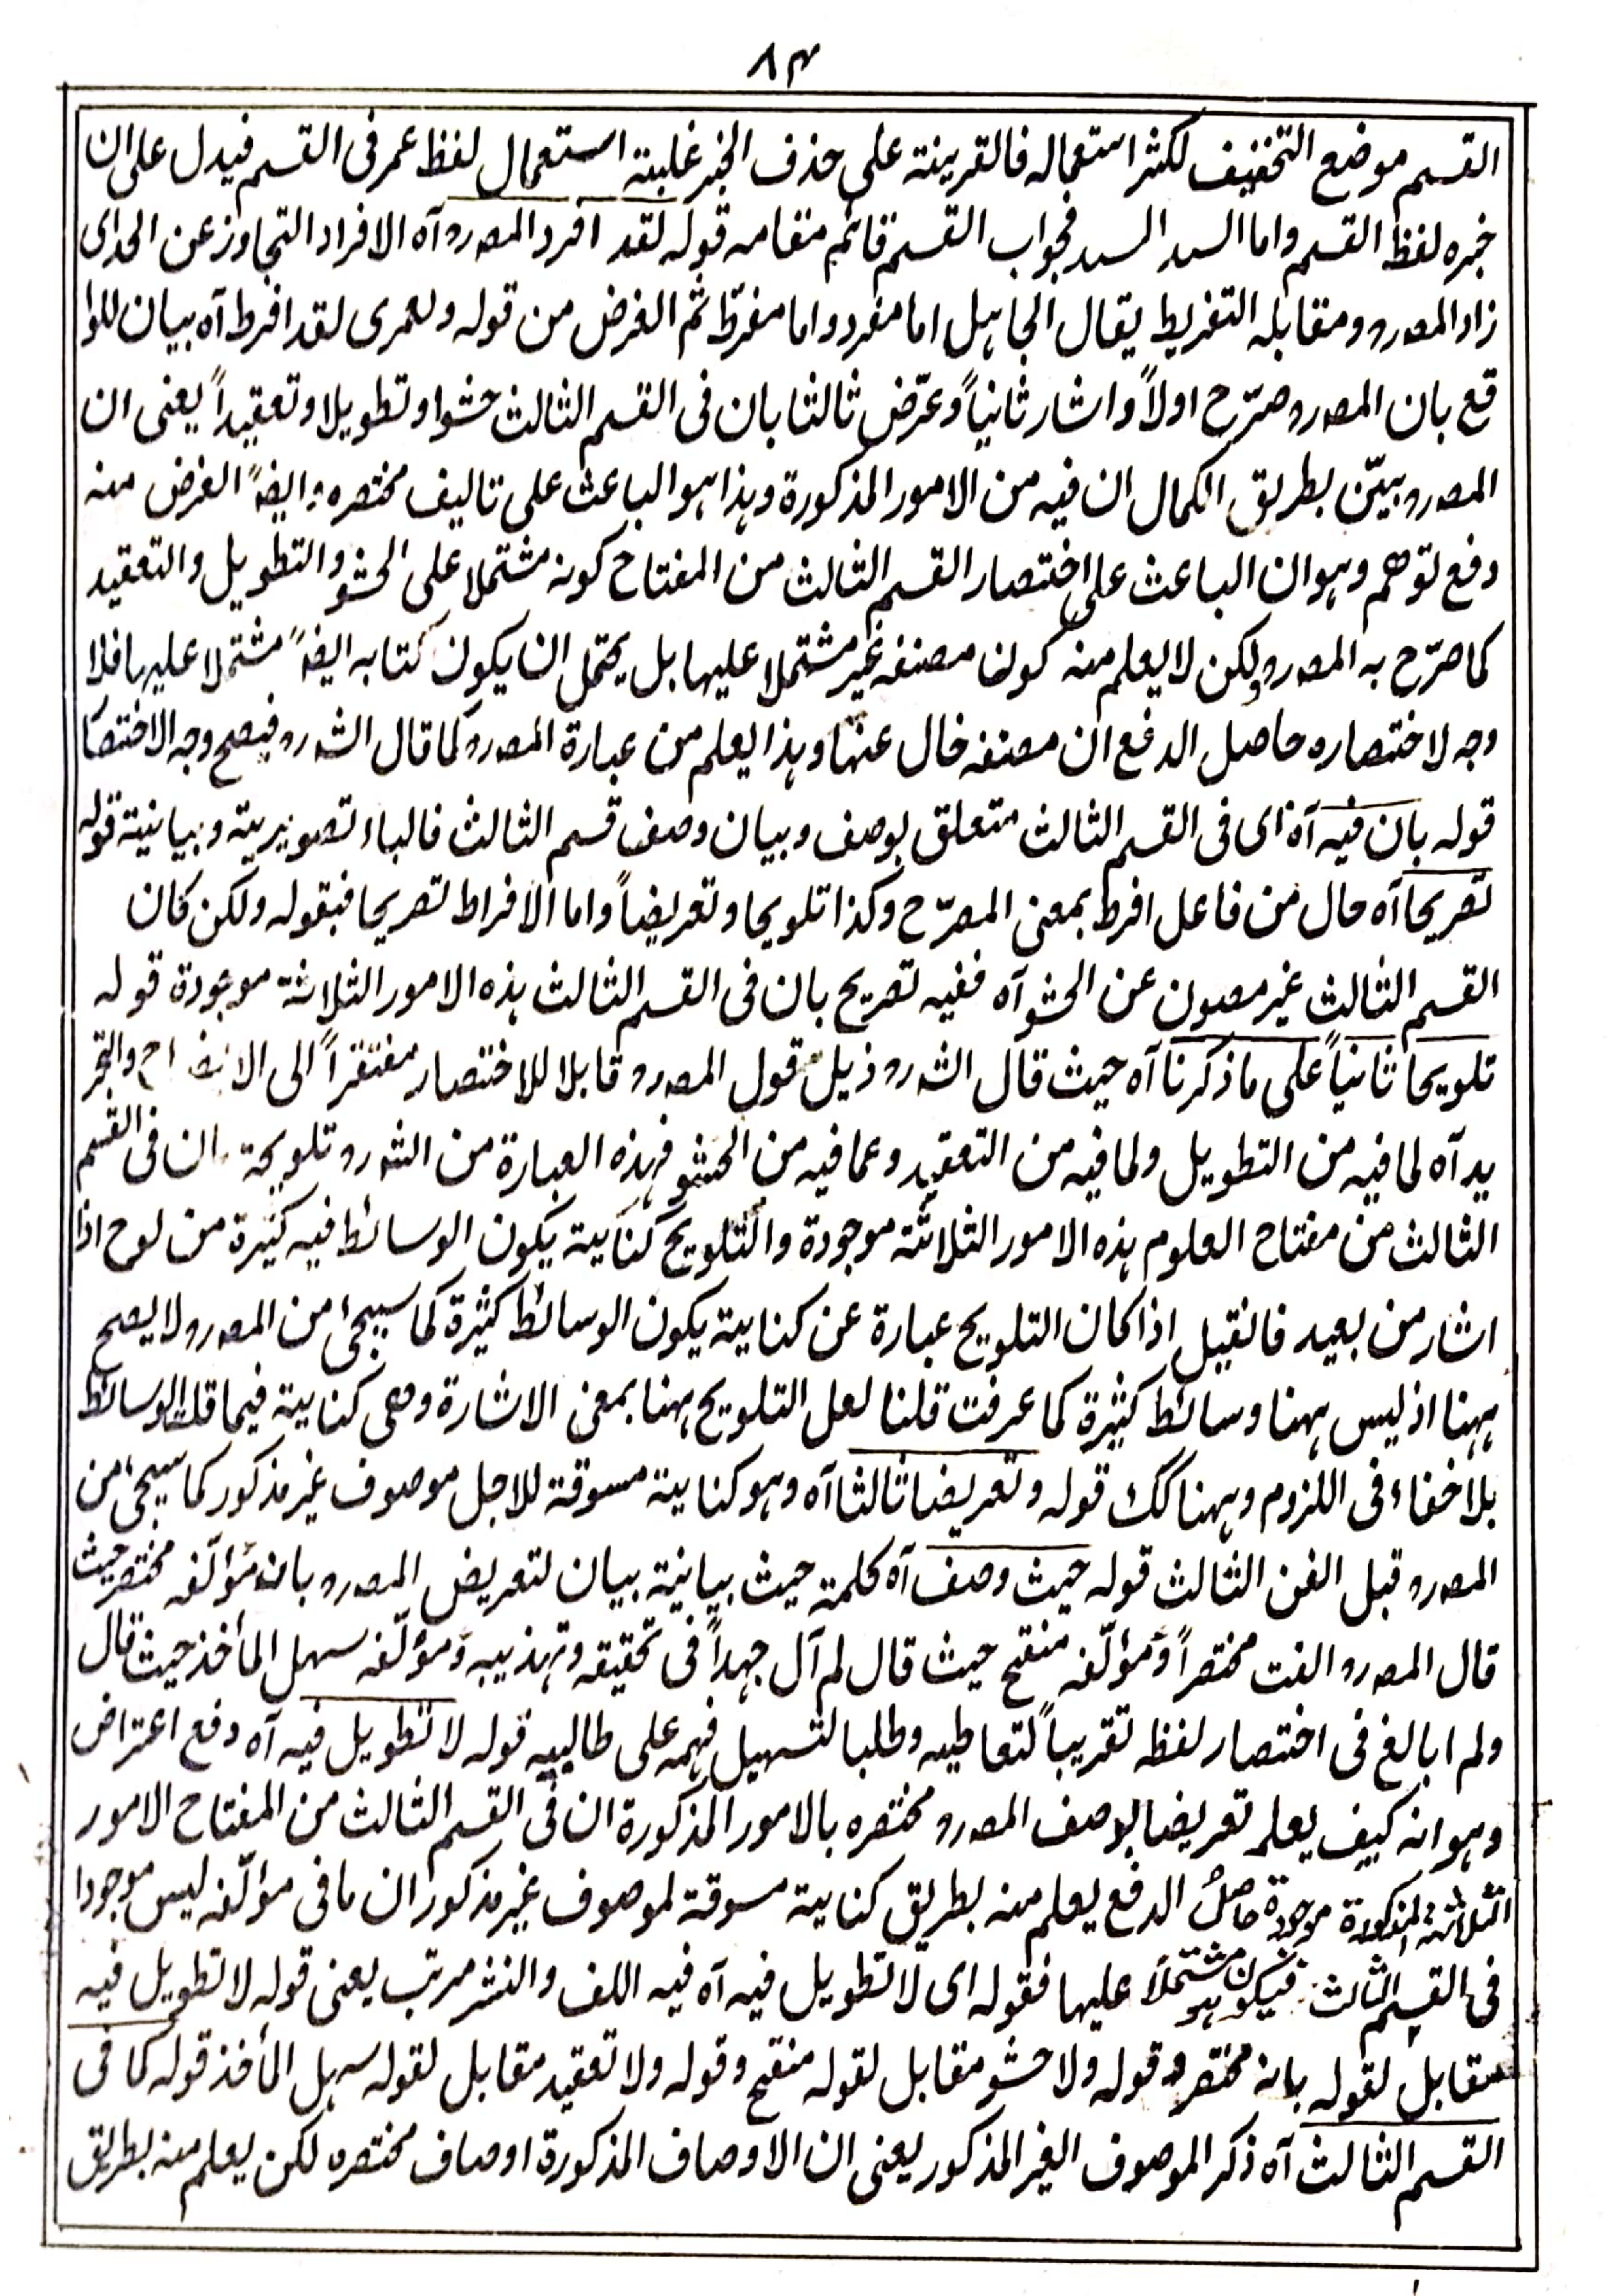 ۸۴
القسم موضع التخفيف لكثر استعماله فالقرينة على حذف الخبر غلبة استعمال لفظ عمر فى القسم فيدل على ان
خبره لفظ القسم واما السد السد فجواب القسم قائم مقامه قوله لقد افرد المصررو آه الافراد التجاوز عن الحد اى
زاد المصررو ومقابله التفريط يقال الجاهل اما مفرد واما مفرّط ثم الغرض من قوله ولعمرى لقد افرط آه بيان للوا
قع بان المصررو صرّح اولاً واشار ثانياً وعرّض ثالثا بان فى القسم الثالث حشوا وتطويلا وتعقيداً يعنى ان
المصررو بيّن بطريق الكمال ان فيه من الامور المذكورة وهذا هو الباعث على تاليف مختصره وايضاً الغرض منه
دفع توهم وهو ان الباعث على اختصار القسم الثالث من المفتاح كونه مشتملا على الحشو والتطويل والتعقيد
كما صرّح به المصررو ولكن لا يعلم منه كون مصنفه غير مشتملا عليها بل يحتمل ان يكون كتابه ايضاً مشتملا عليها فلا
وجه لاختصاره حاصل الدفع ان مصنفه خال عنها وهذا يعلم من عبارة المصررو كما قال الشررو فيصح وجه الاختصا
قوله بان فيه آه اى فى القسم الثالث متعلق بوصف وبيان وصف قسم الثالث فالباء تصويرية وبيانية قوله
تصريحا آه حال من فاعل افرط بمعنى المصرّح وكذا تلويحا وتعريضاً واما الافراط تصريحا فبقوله ولكن كان
القسم الثالث غير مصون عن الحشو آه ففيه تصريح بان فى القسم الثالث هذه الامور الثلاثة موجودة قوله
تلويحاً ثانياً على ما ذكرنا آه حيث قال الشررو ذيل قول المصررو قابلا للاختصار مفتقراً الى الايضاح والتجر
يد آه لما فيه من التطويل ولما فيه من التعقيد وعما فيه من الحشو فهذه العبارة من الشررو تلويحة ان فى القسم
الثالث من مفتاح العلوم هذه الامور الثلاثة موجودة والتلويح كناية يكون الوسائط فيه كثيرة من لوح اذا
اشار من بعيد فانقيل اذا كان التلويح عبارة عن كناية يكون الوسائط كثيرة كما سيجئ من المصررو لا يصح
ههنا اذ ليس ههنا وسائط كثيرة كما عرفت قلنا لعل التلويح ههنا بمعنى الاشارة وهى كناية فيما قلت الوسائط
بلا خفاء فى اللزوم وههنا كك قوله وتعريضا ثالثا آه وهو كناية مسوقة للاجل موصوف غير مذكور كما سيجئ من
المصررو قبل الفن الثالث قوله حيث وصف آه كلمة حيث بيانية بيان لتعريض المصررو بان مؤلّفه مختصر حيث
قال المصررو الفت مختصراً ومؤلّفه منقح حيث قال لم آل جهداً فى تحقيقه وتهذيبه ومؤلّفه سهل المأخذ حيث قال
ولم ابالغ فى اختصار لفظه تقريباً لتعاطيه وطلبا لتسهيل فهمه على طالبيه قوله لا تطويل فيه آه دفع اعتراض
وهو انه كيف يعلم تعريضا بوصف المصررو مختصره بالامور المذكورة ان فى القسم الثالث من المفتاح الامور
الثلاثة المذكورة موجودة حاصل الدفع يعلم منه بطريق كناية مسوقة لموصوف غير مذكور ان ما فى مؤلّفه ليس موجودا
فى القسم الثالث فيكون هو مشتملا عليها فقوله اى لا تطويل فيه آه فيه اللف والنشر مرتب يعنى قوله لا تطويل فيه
مقابل لقوله بانه مختصر وقوله ولا حشو مقابل لقوله منقح وقوله ولا تعقيد مقابل لقوله سهل المأخذ قوله كما فى
القسم الثالث آه ذكر الموصوف الغير المذكور يعنى ان الاوصاف المذكورة اوصاف مختصره لكن يعلم منه بطريق